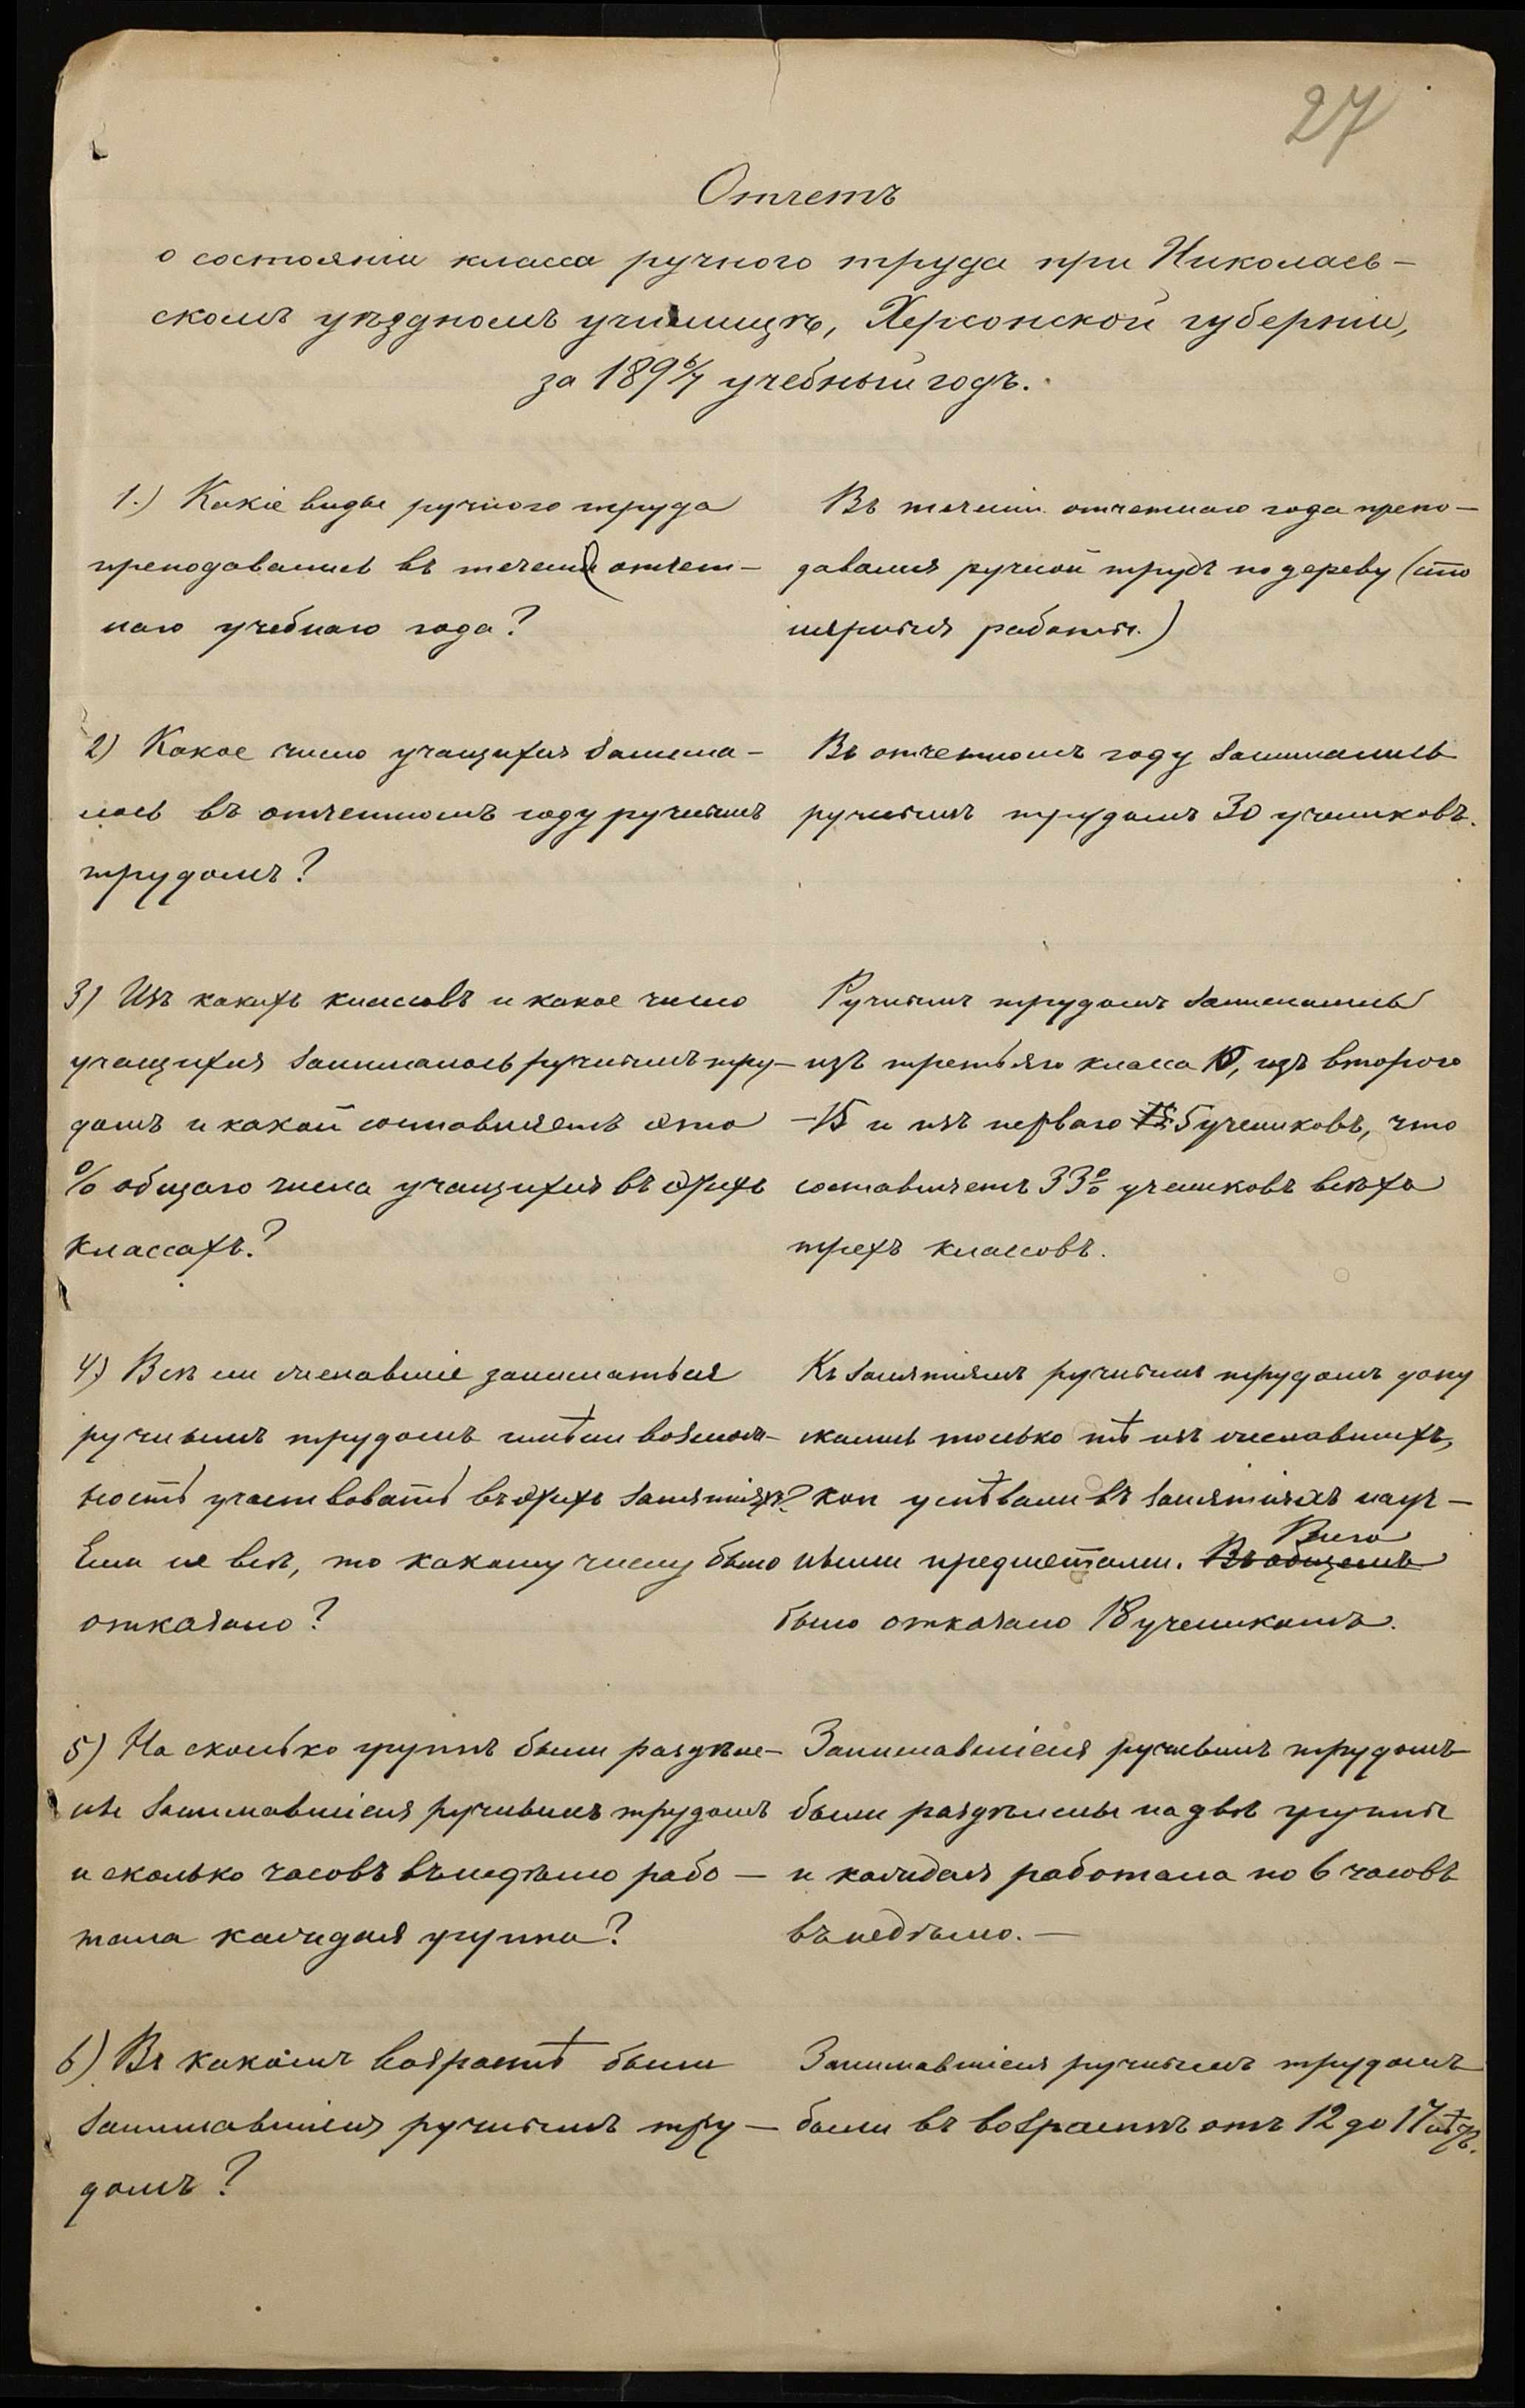 27
Отчетъ
о состояніи класса ручного труда при Николаев-
скомъ уѣздномъ училищѣ, Херсонской губерніи,
за 1896/7 учебный годъ.
1.) Какіе виды ручного труда
преподавались въ теченіи отчет-
наго учебнаго года?
Въ теченіи отчетнаго года препо-
давался ручной трудъ по дереву (сто
лярныя работы.)
2) Какое число учащихся занима-
лось въ отчетномъ году ручнымъ
трудомъ?
Въ отчетномъ году занимались
ручнымъ трудомъ 30 учениковъ.
3) Изъ какихъ классовъ и какое число
учащихся занималось ручнымъ тру-
домъ и какой составляетъ это
% общаго числа учащихся въ этихъ
классахъ?
Ручнымъ трудомъ занимались
изъ третьяго класса 10, изъ второго
-15 и изъ перваго 5 учениковъ, что
составляетъ 33% учениковъ всѣхъ
трехъ классовъ.
4) Всѣ ли желавшіе заниматься
ручнымъ трудомъ имѣли возмож-
ность участвовать въ этихъ занятіяхъ?
Если не всѣ, то какому числу было
отказано?
Къ занятіямъ ручнымъ трудомъ допу
скались только тѣ изъ желавшихъ,
кои успѣвали въ занятіяхъ науч-
ными предметами. Въ общемъ Всего
было отказано 18 ученикамъ.
5) На сколько группъ были раздѣле-
ны занимавшіеся ручнымъ трудомъ
и сколько часовъ въ недѣлю рабо-
тала каждая группа?
Занимавшіеся ручнымъ трудомъ
были раздѣлены на двѣ группы
и каждая работала по 6 часовъ
въ недѣлю.-
6) Въ какомъ возрастѣ были
занимавшіеся ручнымъ тру-
домъ?
Занимавшіеся ручнымъ трудомъ
были въ возрастѣ отъ 12 до 17 лѣтъ.